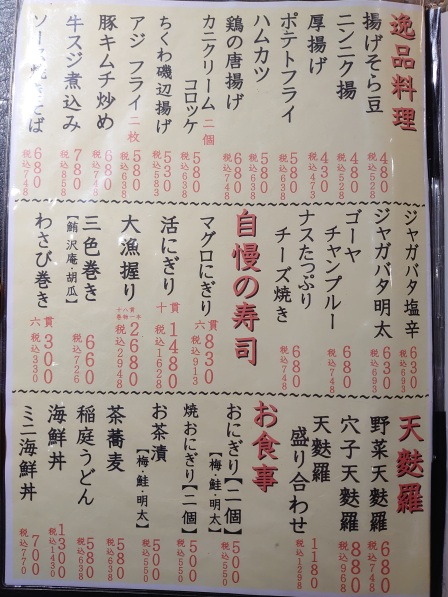 逸品料理
揚げそら豆 480 税込528
ニンニク揚 480 税込528
厚揚げ 430 税込473
ポテトフライ 580 税込638
ハムカツ 580 税込638
鶏の唐揚げ 680 税込748
カニクリームコロッケ 二個 580 税込638
ちくわ磯辺揚げ 530 税込583
アジフライ 二枚 580 税込638
豚キムチ炒め 680 税込748
牛スジ煮込み 780 税込858
ソース焼きそば 680 税込748
ジャガバタ塩辛 630 税込693
ジャガバタ明太 630 税込693
ゴーヤチャンプルー 680 税込748
ナスたっぷりチーズ焼き 680 税込748
自慢の寿司
マグロにぎり 六貫 830 税込913
活にぎり 十貫 1480 税込1628
大漁握り 十八貫 巻物一本 2680 税込2948
三色巻き【鮪・沢庵・胡瓜】 660 税込726
わさび巻き 六貫 300 税込330
天麩羅
野菜天麩羅 680 税込748
穴子天麩羅 880 税込968
天麩羅盛り合わせ 1180 税込1298
お食事
おにぎり【二個】【梅・鮭・明太】 500 税込550
焼おにぎり【二個】 500 税込550
お茶漬【梅・鮭・明太】 500 税込550
茶蕎麦 580 税込638
稲庭うどん 580 税込638
海鮮丼 1300 税込1430
ミニ海鮮丼 700 税込770